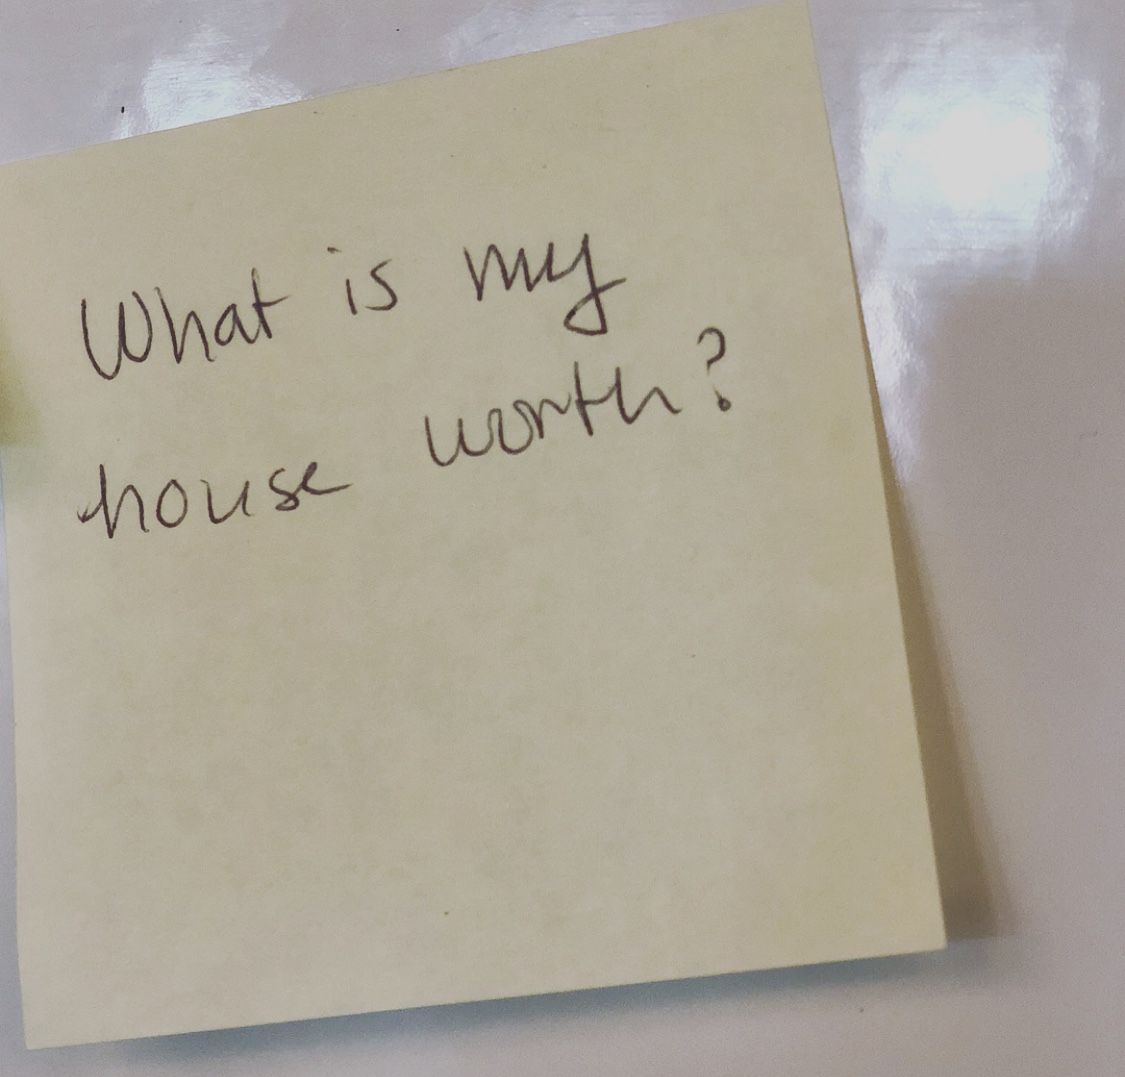 What is my
house worth?